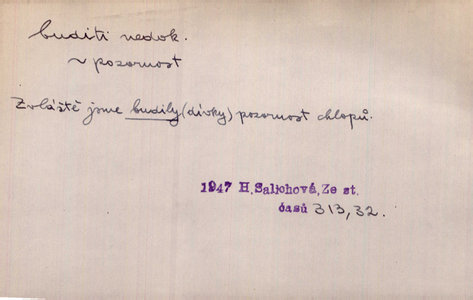 buditi nedok.
~ pozornost
Zvláště jsme budily (dívky) pozornost chlapů.
1947 H. Salichová, Ze st.
časů 313, 32.